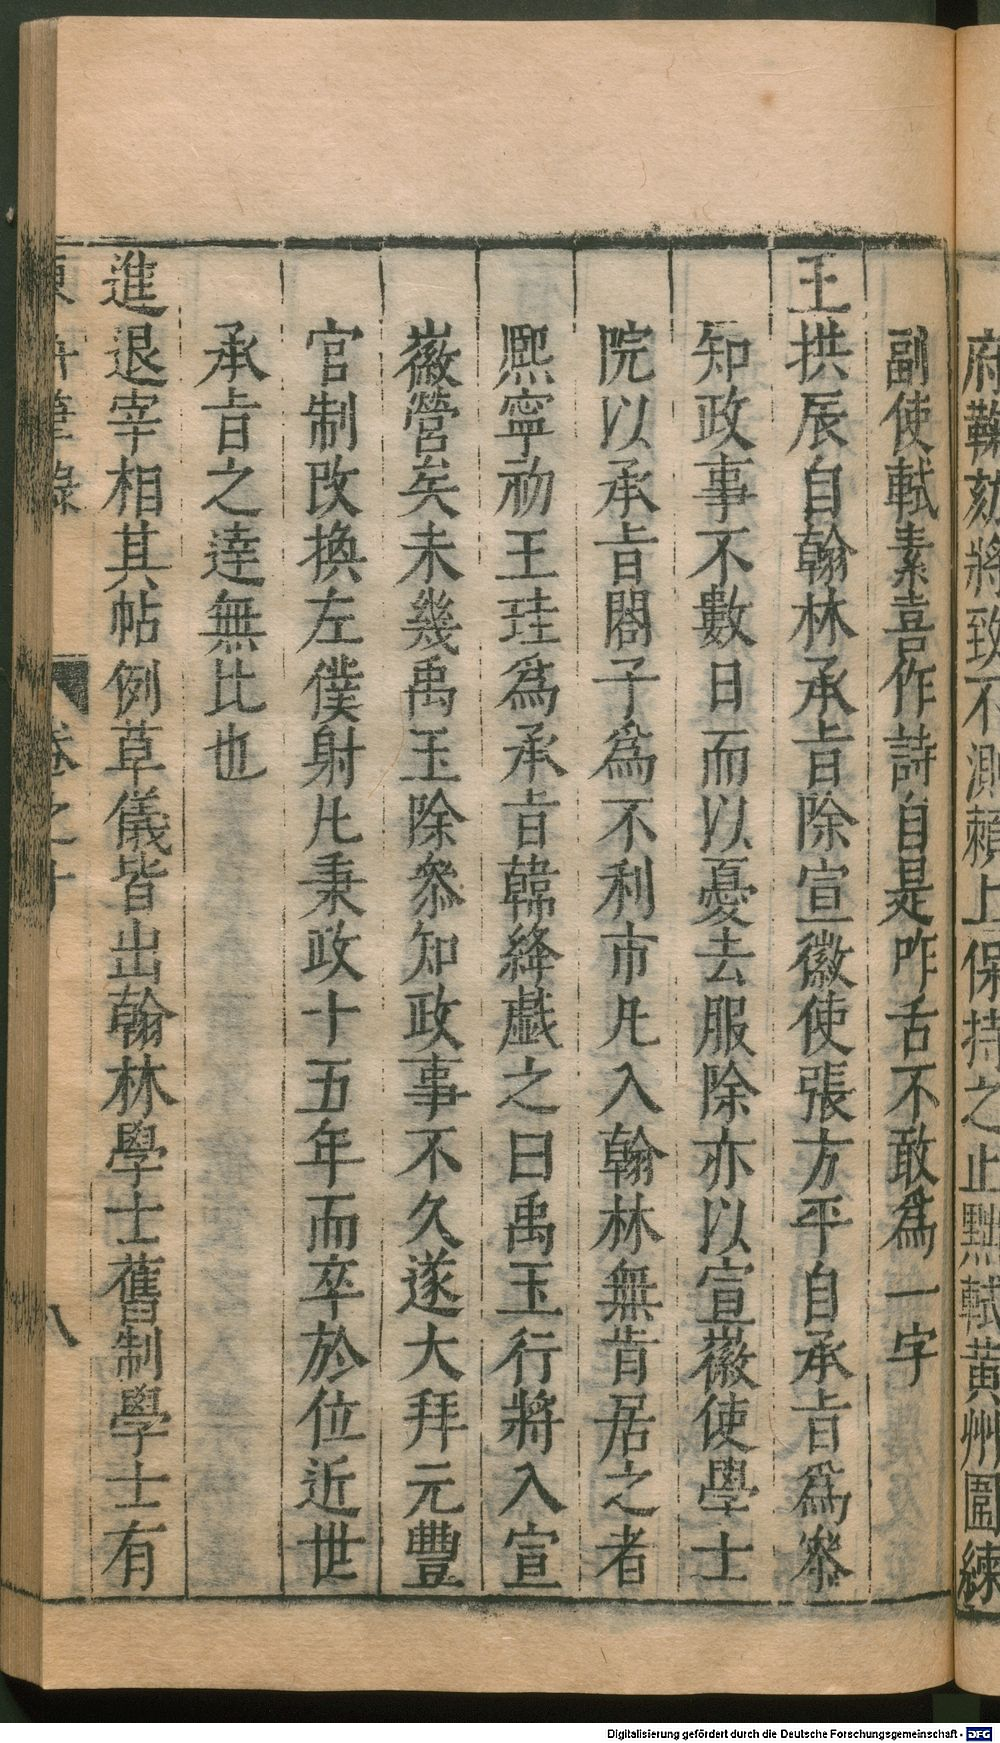 府鞫劾將致不測賴上保持之止黜軾黄州團練
副使軾素喜作詩自是咋舌不敢爲一字
王拱辰自翰林承旨除宣徽使張方平自承旨爲叅
知政事不數日而以憂去服除亦以宣徽使學士
院以承旨閤子爲不利市凡入翰林無肯居之者
熈寧初王珪爲承旨韓絳戲之曰禹玉行將入宣
徽營矣未幾禹玉除叅知政事不久遂大拜元豐
官制改換左僕射凡秉政十五年而卒於位近世
承旨之達無比也
進退宰相其帖例草儀皆出翰林學士舊制學士有
東軒筆錄
卷之十
八
Digitalisierung gefördert durch die Deutsche Forschungsgemeinschaft - DFG